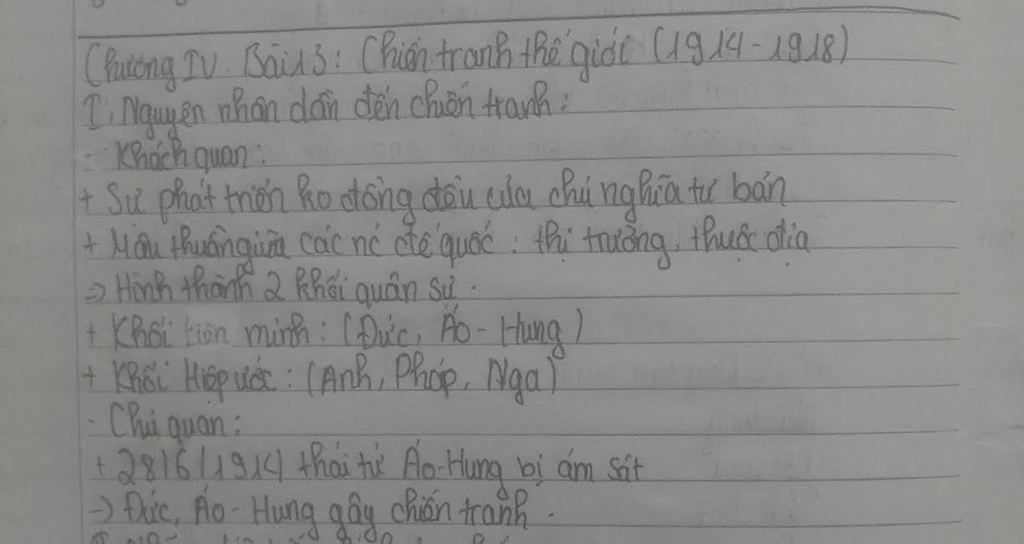 Chương IV. Bài 13: Chiến tranh thế giới (1914-1918)
I, Nguyên nhân dẫn đến chiến tranh:
- Khách quan:
+ Sự phát triển ko đồng đều của chủ nghĩa tư bản
+ Mâu thuẫn giữa các nc đế quốc: thị trường, thuộc địa
=> Hình thành 2 khối quân sự.
+ Khối liên minh: (Đức, Áo - Hung)
+ Khối Hiệp ước: (Anh, Pháp, Nga)
- Chủ quan:
+ 28/6/1914 thái tử Áo-Hung bị ám sát
-> Đức, Áo - Hung gây chiến tranh.